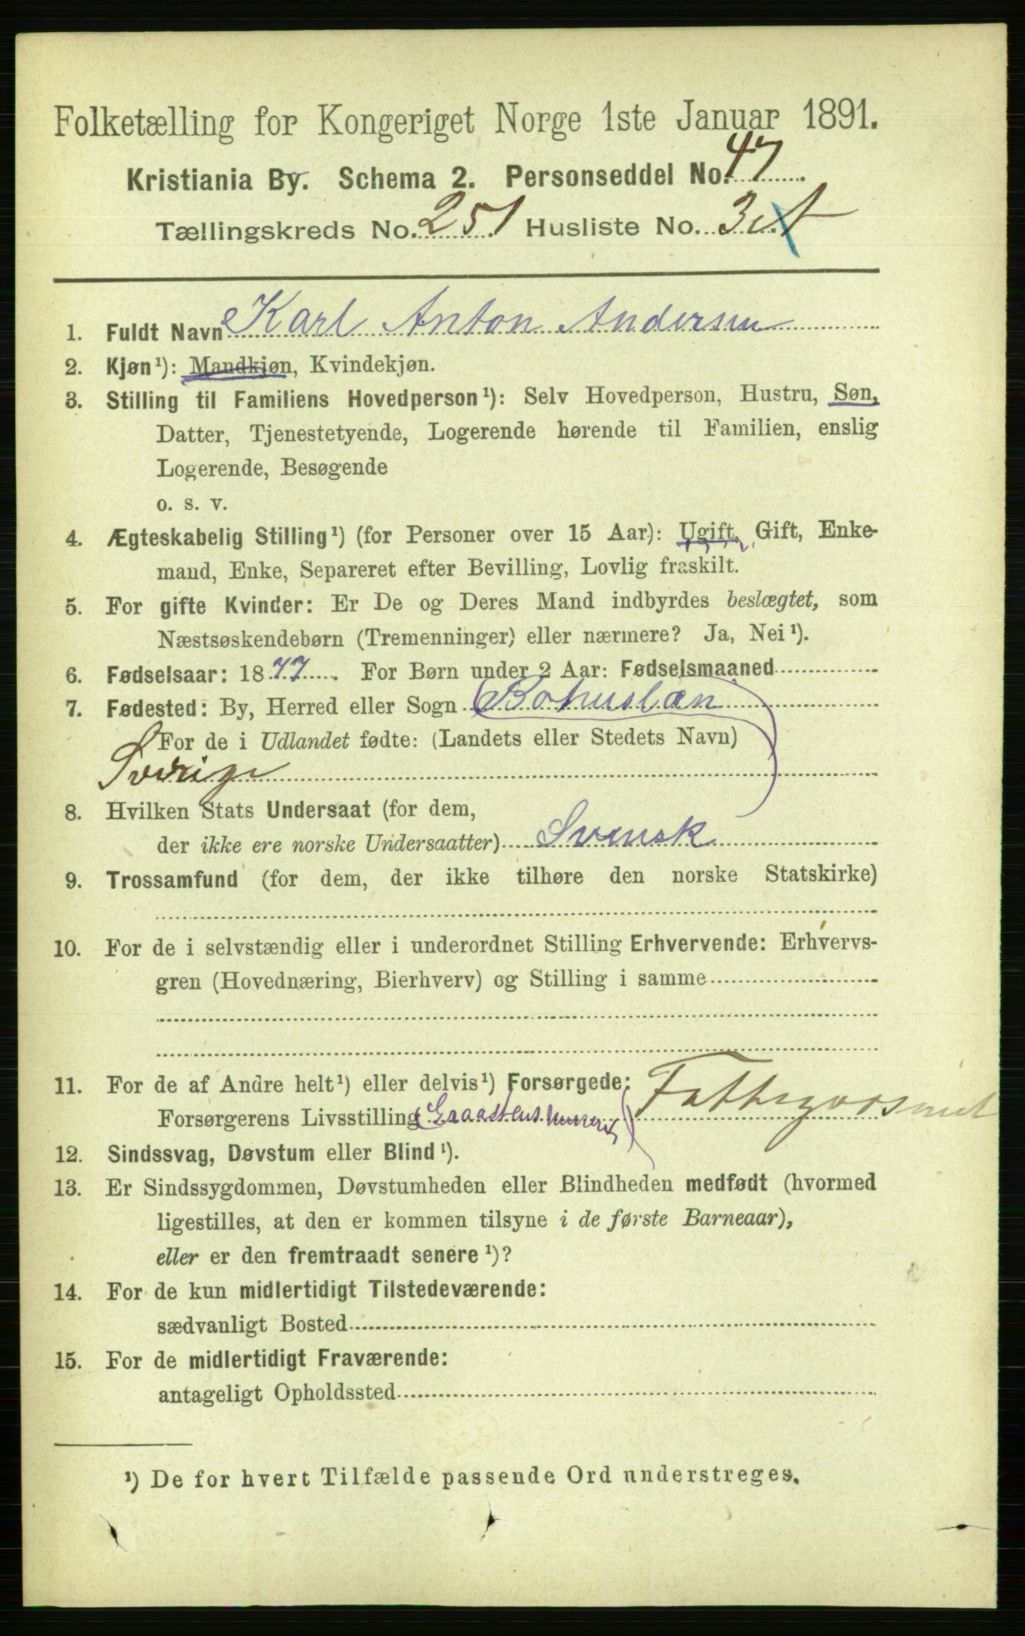 Folketælling for Kongeriget Norge 1ste Januar 1891.
Kristiania By. Schema 2. Personseddel No. 47
Tællingskreds No. 251 Husliste No. 3 A
1. Fuldt Navn Karl Anton Andersen
2. Kjøn¹): Mandkjøn, Kvindekjøn.
3. Stilling til Familiens Hovedperson¹): Selv Hovedperson, Hustru, Søn,
Datter, Tjenestetyende, Logerende hørende til Familien, enslig
Logerende, Besøgende
o. s. v.
4. Ægteskabelig Stilling¹) (for Personer over 15 Aar): Ugift, Gift, Enke-
mand, Enke, Separeret efter Bevilling, Lovlig fraskilt.
5. For gifte Kvinder: Er De og Deres Mand indbyrdes beslægtet, som
Næstsøskendebørn (Tremenninger) eller nærmere? Ja, Nei¹).
6. Fødselsaar: 1877. For Børn under 2 Aar: Fødselsmaaned
7. Fødested: By, Herred eller Sogn Bohuslæn
For de i Udlandet fødte: (Landets eller Stedets Navn)
Sverige
8. Hvilken Stats Undersaat (for dem,
der ikke ere norske Undersaatter) Svensk
9. Trossamfund (for dem, der ikke tilhøre den norske Statskirke)
10. For de i selvstændig eller i underordnet Stilling Erhvervende: Erhvervs-
gren (Hovednæring, Bierhverv) og Stilling i samme
11. For de af Andre helt¹) eller delvis¹) Forsørgede:
Forsørgerens Livsstilling
12. Sindssvag, Døvstum eller Blind¹).
13. Er Sindssygdommen, Døvstumheden eller Blindheden medfødt (hvormed
ligestilles, at den er kommen tilsyne i de første Barneaar),
eller er den fremtraadt senere¹)?
14. For de kun midlertidigt Tilstedeværende:
sædvanligt Bosted
15. For de midlertidigt Fraværende:
antageligt Opholdssted
¹) De for hvert Tilfælde passende Ord understreges.